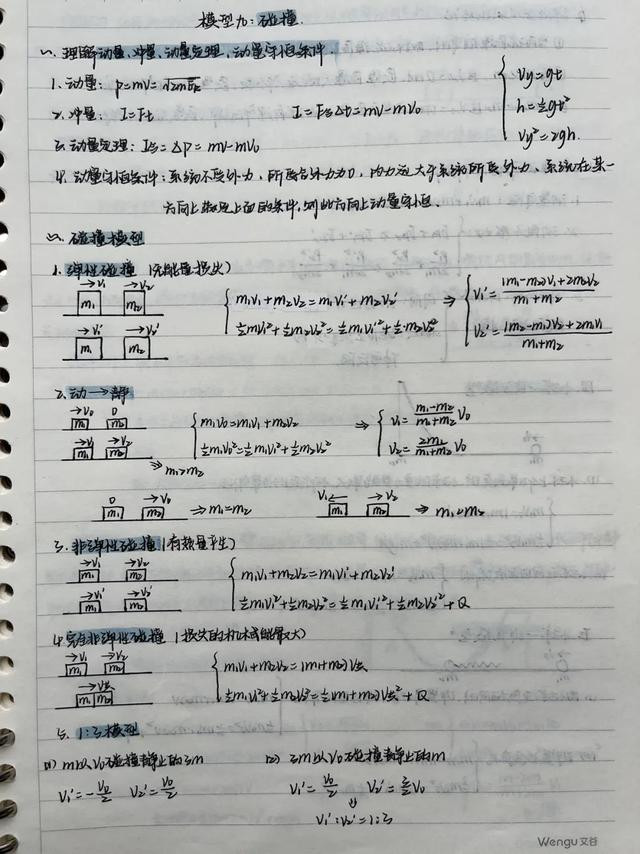 模型九:碰撞.
一、理解动量、冲量、动量定理、动量守恒条件.
1.动量: p=mv=√2mEk
2.冲量: I=Ft I合=F合Δt=mv-mv₀
3.动量定理: I合=Δp=mv-mv₀
{ vy=gt
h=½gt²
vy²=2gh.
4.动量守恒条件:系统不受外力、所受合外力为0、内力远大于系统所受外力、系统在某一
方向上满足上面的条件,则此方向上动量守恒.
二、碰撞模型
1.弹性碰撞(无能量损失)
→v₁ →v₂
m₁ m₂
→v₁' →v₂'
m₁ m₂
{ m₁v₁+m₂v₂=m₁v₁'+m₂v₂'
½m₁v₁²+½m₂v₂²=½m₁v₁'²+½m₂v₂'²
⇒ { v₁'=(m₁-m₂)v₁+2m₂v₂/m₁+m₂
v₂'=(m₂-m₁)v₂+2m₁v₁/m₁+m₂
2.动→静
→v₀ 0
m₁ m₂
→v₁ →v₂
m₁ m₂
⇒m₁>m₂
{ m₁v₀=m₁v₁+m₂v₂
½m₁v₀²=½m₁v₁²+½m₂v₂²
⇒ { v₁=m₁-m₂/m₁+m₂ v₀
v₂=2m₁/m₁+m₂ v₀
0 →v₀
m₁ m₂ ⇒m₁=m₂
v₁← →v₂
m₁ m₂ ⇒m₁<m₂
3.非弹性碰撞(有热量产生)
→v₁ →v₂
m₁ m₂
→v₁' →v₂'
m₁ m₂
{ m₁v₁+m₂v₂=m₁v₁'+m₂v₂'
½m₁v₁²+½m₂v₂²=½m₁v₁'²+½m₂v₂'²+Q
4.完全非弹性碰撞(损失的机械能最大)
→v₁ →v₂
m₁ m₂
→v共
m₁m₂
{ m₁v₁+m₂v₂=(m₁+m₂)v共
½m₁v₁²+½m₂v₂²=½(m₁+m₂)v共²+Q
5. 1:3模型
(1) m以v₀碰撞静止的3m (2) 3m以v₀碰撞静止的m
v₁'=-v₀/2 v₂'=v₀/2 v₁'=v₀/2 v₂'=3/2v₀
⇓
v₁':v₂'=1:3
Wengu 文谷